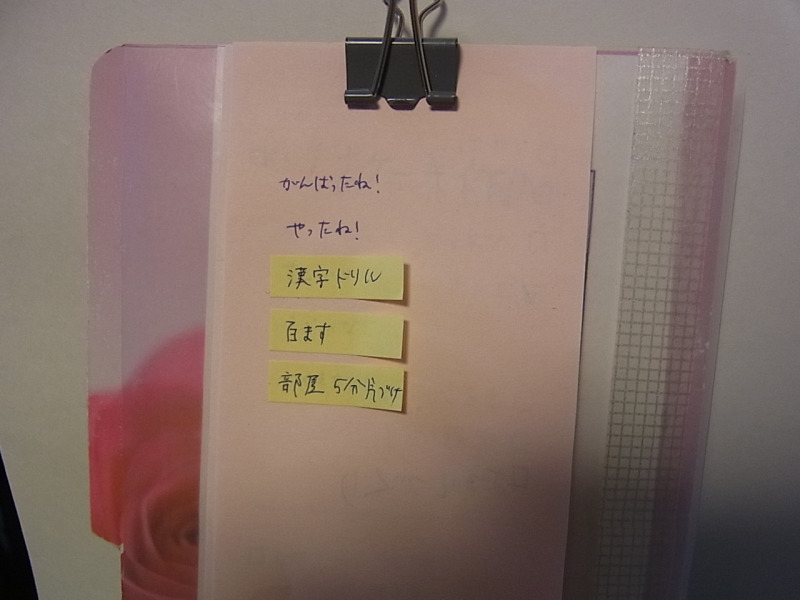 がんばったね!
やったね!
漢字ドリル
百ます
部屋 5分片づけ